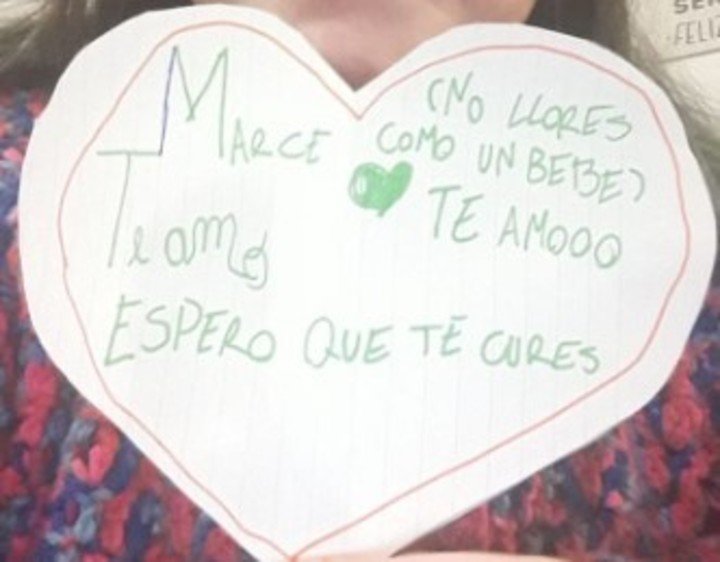 MARCE
Te amo
ESPERO QUE TE CURES
(NO LLORES
COMO UN BEBE)
TE AMOOO
FELIZ